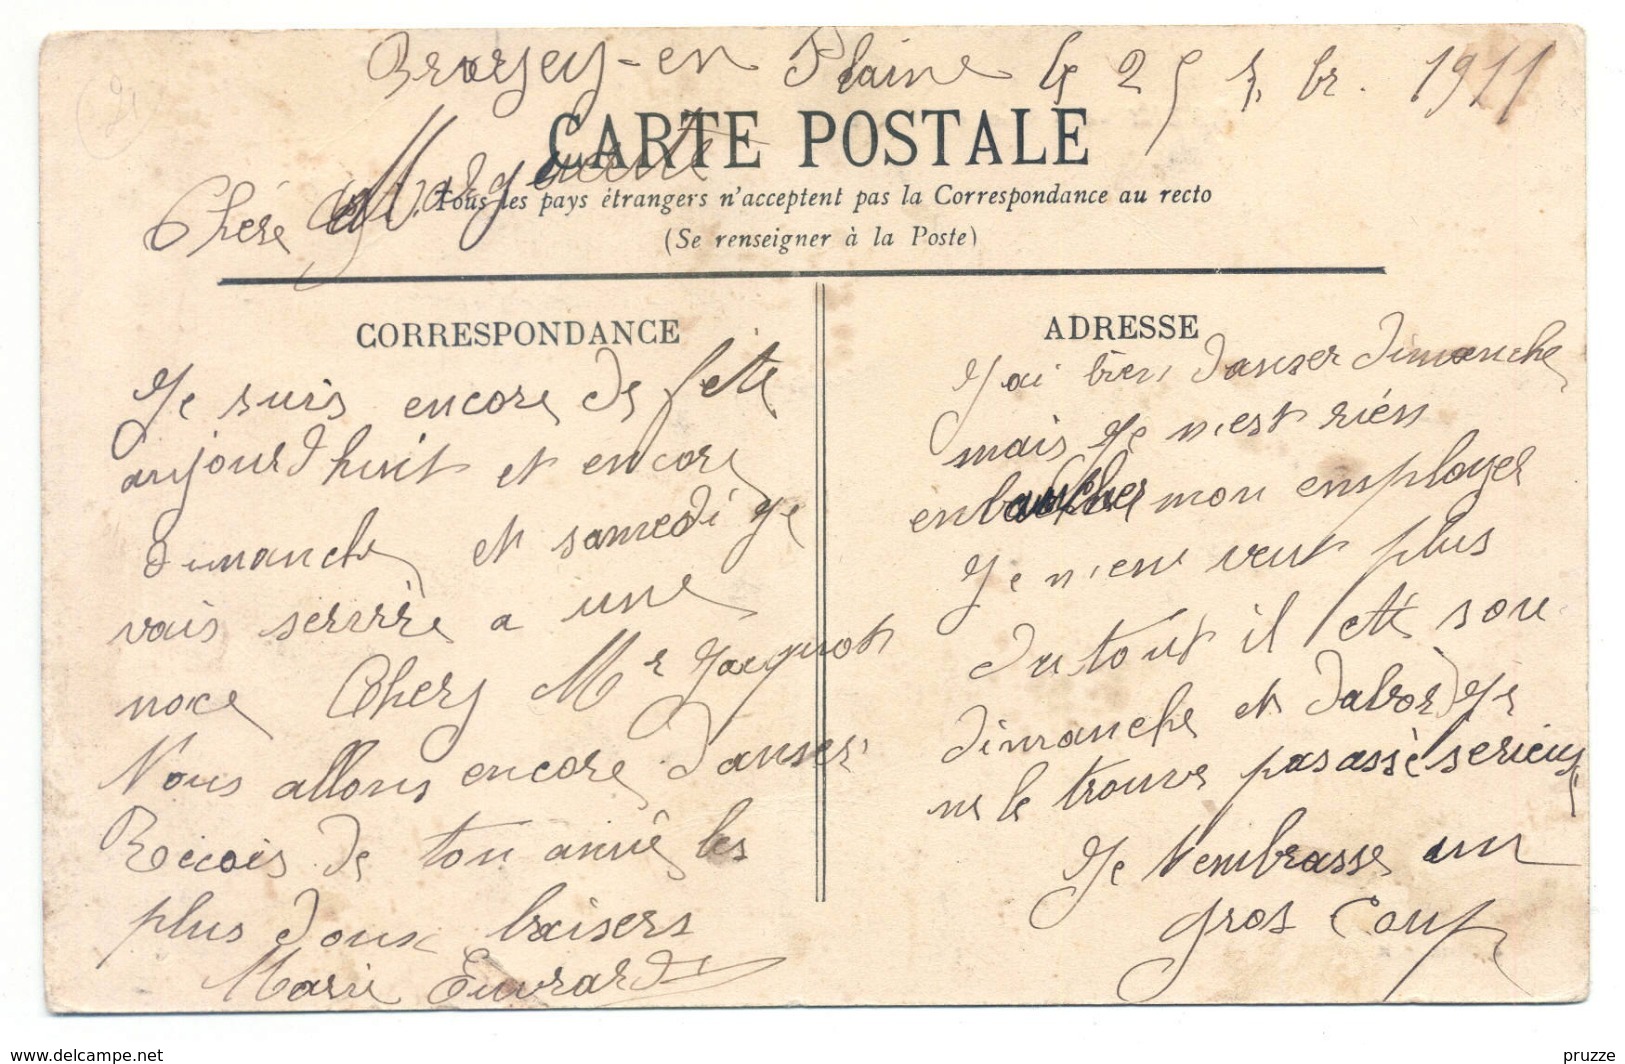 Brazey-en Plaine le 25 7.br. 1911
CARTE POSTALE
Chére Marguerite
Tous les pays étrangers n'acceptent pas la Correspondance au recto
(Se renseigner à la Poste)
CORRESPONDANCE
Je suis encore de fete
aujourd huit et encore
dimanche et samedi je
vais servire a une
noce Chers Mr Jacquot
Nous allons encore danser
Recois de ton amie les
plus doux baisers
Marie Euvrard
ADRESSE
J ai bien danser dimanche
mais Je n'est rien
enbaucher mon employer
Je n'en veut plus
du tout il été sou
dimanche et dabord Je
ne le trouve pas assé serieux
Je t'embrasse un
gros coup
www.delcampe.net
pruzze